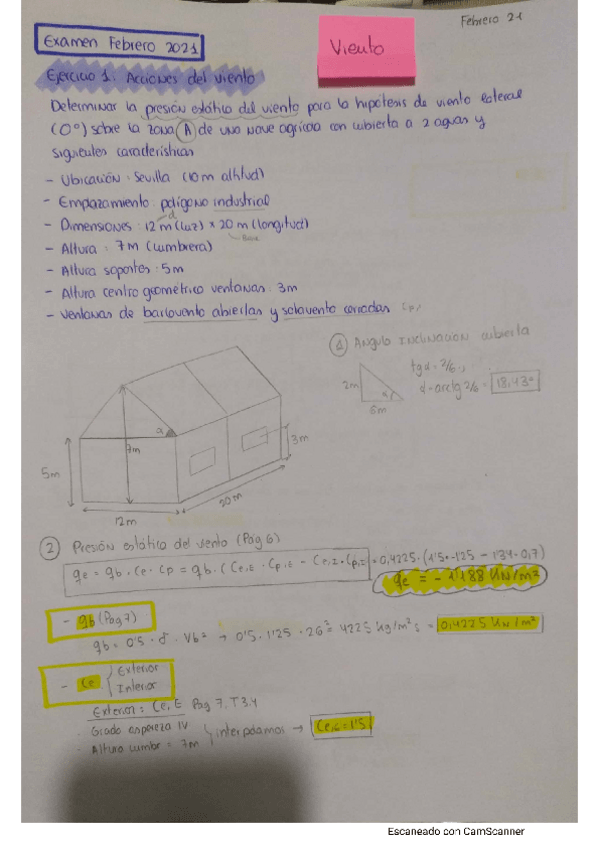 Febrero 21
Examen Febrero 2021
Viento
Ejercicio 1: Acciones del viento
Determinar la presión estática del viento para la hipótesis de viento lateral
(0°) sobre la zona A de una nave agrícola con cubierta a 2 aguas y
siguientes características
- Ubicación: Sevilla (10m altitud)
- Emplazamiento: polígono industrial
- Dimensiones: 12m (luz) x 20m (longitud)
d
Base
- Altura: 7m (cumbrera)
- Altura soportes: 5m
- Altura centro geométrico ventanas: 3m
- Ventanas de barlovento abiertas y sotavento cerradas (p)
1 ANGULO INCLINACION cubierta
2m
α
6m
tgα = 2/6
α = arctg 2/6 = 18,43°
α
7m
5m
3m
12m
20m
2 Presión estática del viento (Pág 6)
qe = qb · Ce · Cp = qb · (Ce,E · Cp,E - Ce,I · Cp,I) = 0,4225 · (1'5 · -1'25 - 1'34 · 0,7)
qe = -1'188 KN/m²
- qb (Pag 7)
qb = 0'5 · δ · Vb² → 0'5 · 1'25 · 26² = 422'5 Kg/m²s = 0,4225 KN/m²
- Ce
Exterior
Interior
Exterior: Ce,E Pag 7, T3.4
· Grado aspereza IV
· Altura cumbr = 7m
interpolamos → Ce,E = 1'5
Escaneado con CamScanner